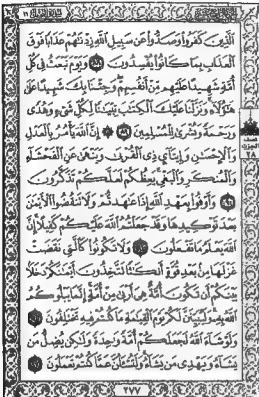 ٱلَّذِينَ كَفَرُوا۟ وَصَدُّوا۟ عَن سَبِيلِ ٱللَّهِ زِدْنَٰهُمْ عَذَابًا فَوْقَ
ٱلْعَذَابِ بِمَا كَانُوا۟ يُفْسِدُونَ ٨٨ وَيَوْمَ نَبْعَثُ فِى كُلِّ
أُمَّةٍ شَهِيدًا عَلَيْهِم مِّنْ أَنفُسِهِمْ وَجِئْنَا بِكَ شَهِيدًا عَلَىٰ
هَٰٓؤُلَآءِ وَنَزَّلْنَا عَلَيْكَ ٱلْكِتَٰبَ تِبْيَٰنًا لِّكُلِّ شَىْءٍ وَهُدًى
وَرَحْمَةً وَبُشْرَىٰ لِلْمُسْلِمِينَ ٨٩ ۞ إِنَّ ٱللَّهَ يَأْمُرُ بِٱلْعَدْلِ
وَٱلْإِحْسَٰنِ وَإِيتَآئِ ذِى ٱلْقُرْبَىٰ وَيَنْهَىٰ عَنِ ٱلْفَحْشَآءِ
وَٱلْمُنكَرِ وَٱلْبَغْىِ يَعِظُكُمْ لَعَلَّكُمْ تَذَكَّرُونَ
٩٠ وَأَوْفُوا۟ بِعَهْدِ ٱللَّهِ إِذَا عَٰهَدتُّمْ وَلَا تَنقُضُوا۟ ٱلْأَيْمَٰنَ
بَعْدَ تَوْكِيدِهَا وَقَدْ جَعَلْتُمُ ٱللَّهَ عَلَيْكُمْ كَفِيلًا إِنَّ
ٱللَّهَ يَعْلَمُ مَا تَفْعَلُونَ ٩١ وَلَا تَكُونُوا۟ كَٱلَّتِى نَقَضَتْ
غَزْلَهَا مِنۢ بَعْدِ قُوَّةٍ أَنكَٰثًا تَتَّخِذُونَ أَيْمَٰنَكُمْ دَخَلًۢا
بَيْنَكُمْ أَن تَكُونَ أُمَّةٌ هِىَ أَرْبَىٰ مِنْ أُمَّةٍ إِنَّمَا يَبْلُوكُمُ
ٱللَّهُ بِهِۦ وَلَيُبَيِّنَنَّ لَكُمْ يَوْمَ ٱلْقِيَٰمَةِ مَا كُنتُمْ فِيهِ تَخْتَلِفُونَ ٩٢
وَلَوْ شَآءَ ٱللَّهُ لَجَعَلَكُمْ أُمَّةً وَٰحِدَةً وَلَٰكِن يُضِلُّ مَن
يَشَآءُ وَيَهْدِى مَن يَشَآءُ وَلَتُسْـَٔلُنَّ عَمَّا كُنتُمْ تَعْمَلُونَ ٩٣
نصف
الحزب
٢٨
٢٧٧